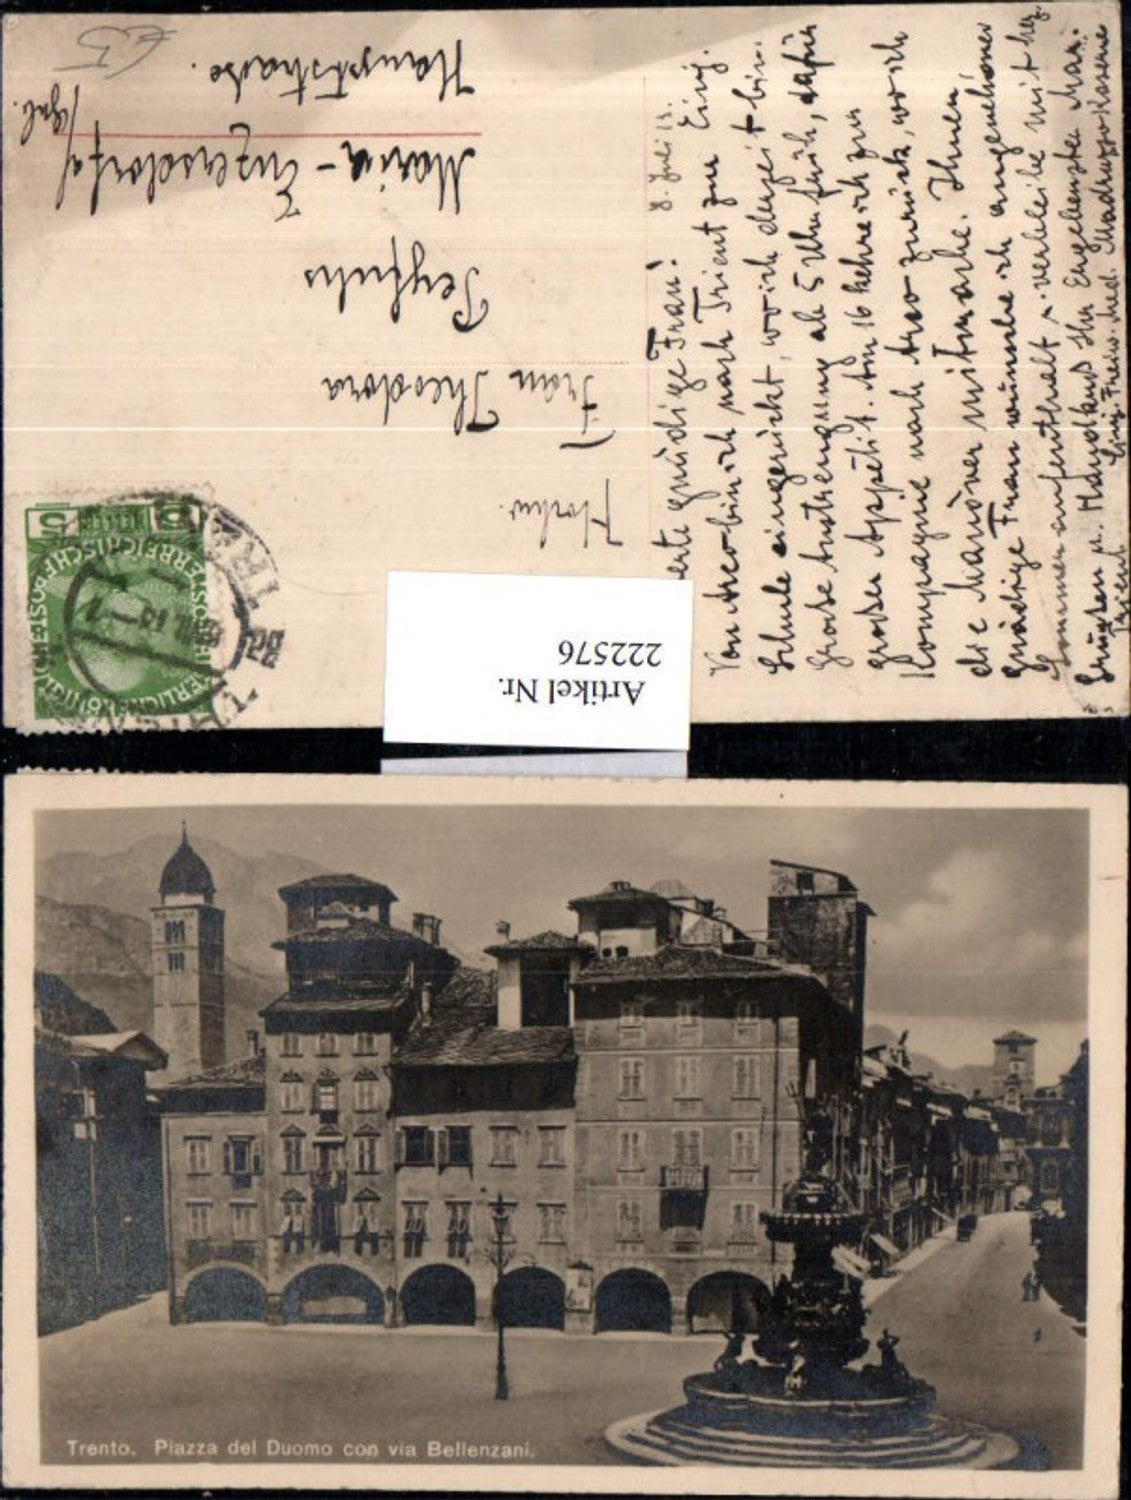 Hochw.
Frau Theodora
Peyfuhs
Maria-Enzersdorf a/
Hauptstrasse.
Artikel Nr.
222576
8. Juli 13.
Werte gnädige Frau!
Von Arco bin ich nach Trient zur Einj.
Schule eingerückt, wo ich derzeit bin.
Große Anstrengung ab 5 Uhr früh, dafür
großer Appetit. Am 16 kehre ich zur
Kompagnie nach Arco zurück, wo ich
die Manöver mitmache. Ihnen,
gnädige Frau wünsche ich angenehmen
Sommeraufenthalt u. verbleibe mit hzl.
Grüßen u. Handkuß Ihr Ergebenster
Trient Einj. Freiw. Med. Madruzzo Kaserne
5 HELLER 5
Trento. Piazza del Duomo con via Bellenzani.